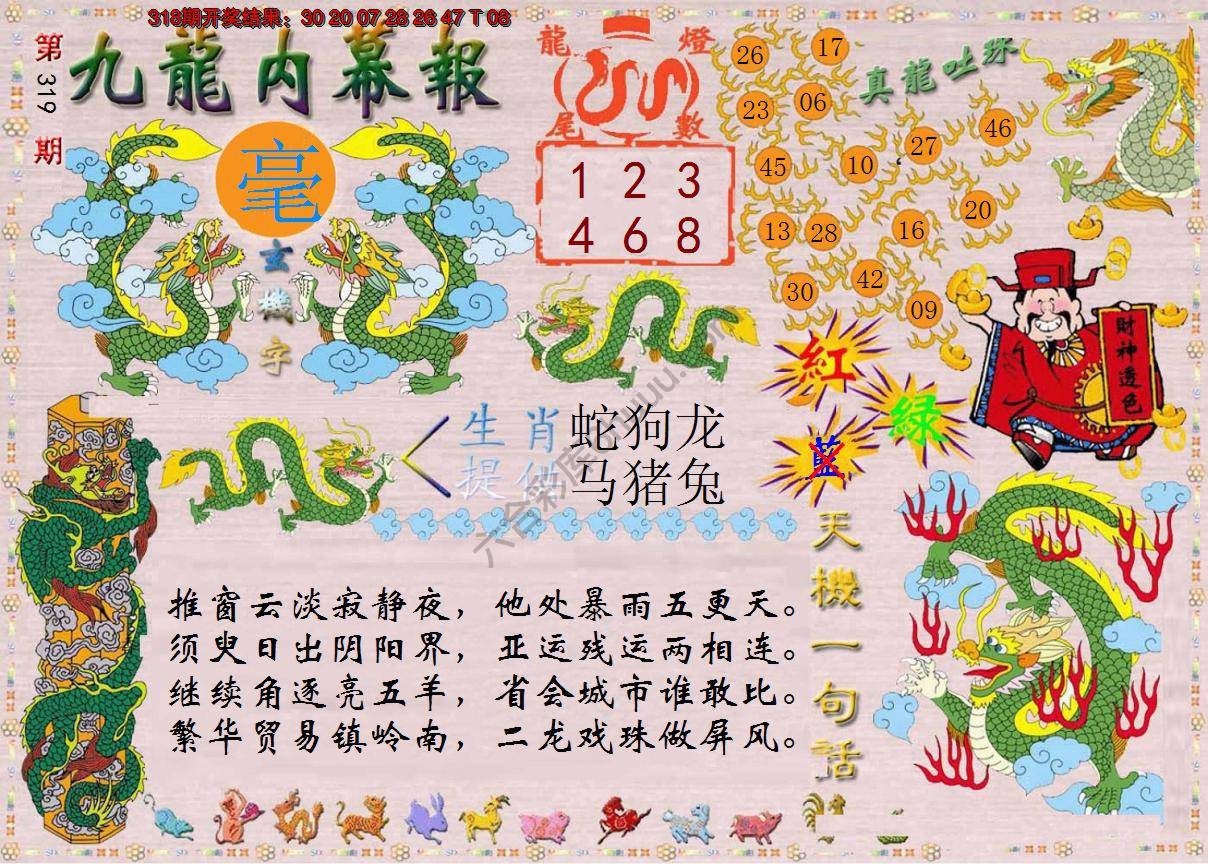 318期开奖结果：30 20 07 28 26 47 T 08
第319期
九龍内幕報
毫
玄機字
龍燈
尾數
1 2 3
4 6 8
真龍吐珠
26
17
23
06
45
10
27
46
13
28
16
20
30
42
09
財神透色
紅
綠
藍
生肖
提供
蛇狗龙
马猪兔
天機一句話
推窗云淡寂静夜，他处暴雨五更天。
须臾日出阴阳界，亚运残运两相连。
继续角逐亮五羊，省会城市谁敢比。
繁华贸易镇岭南，二龙戏珠做屏风。